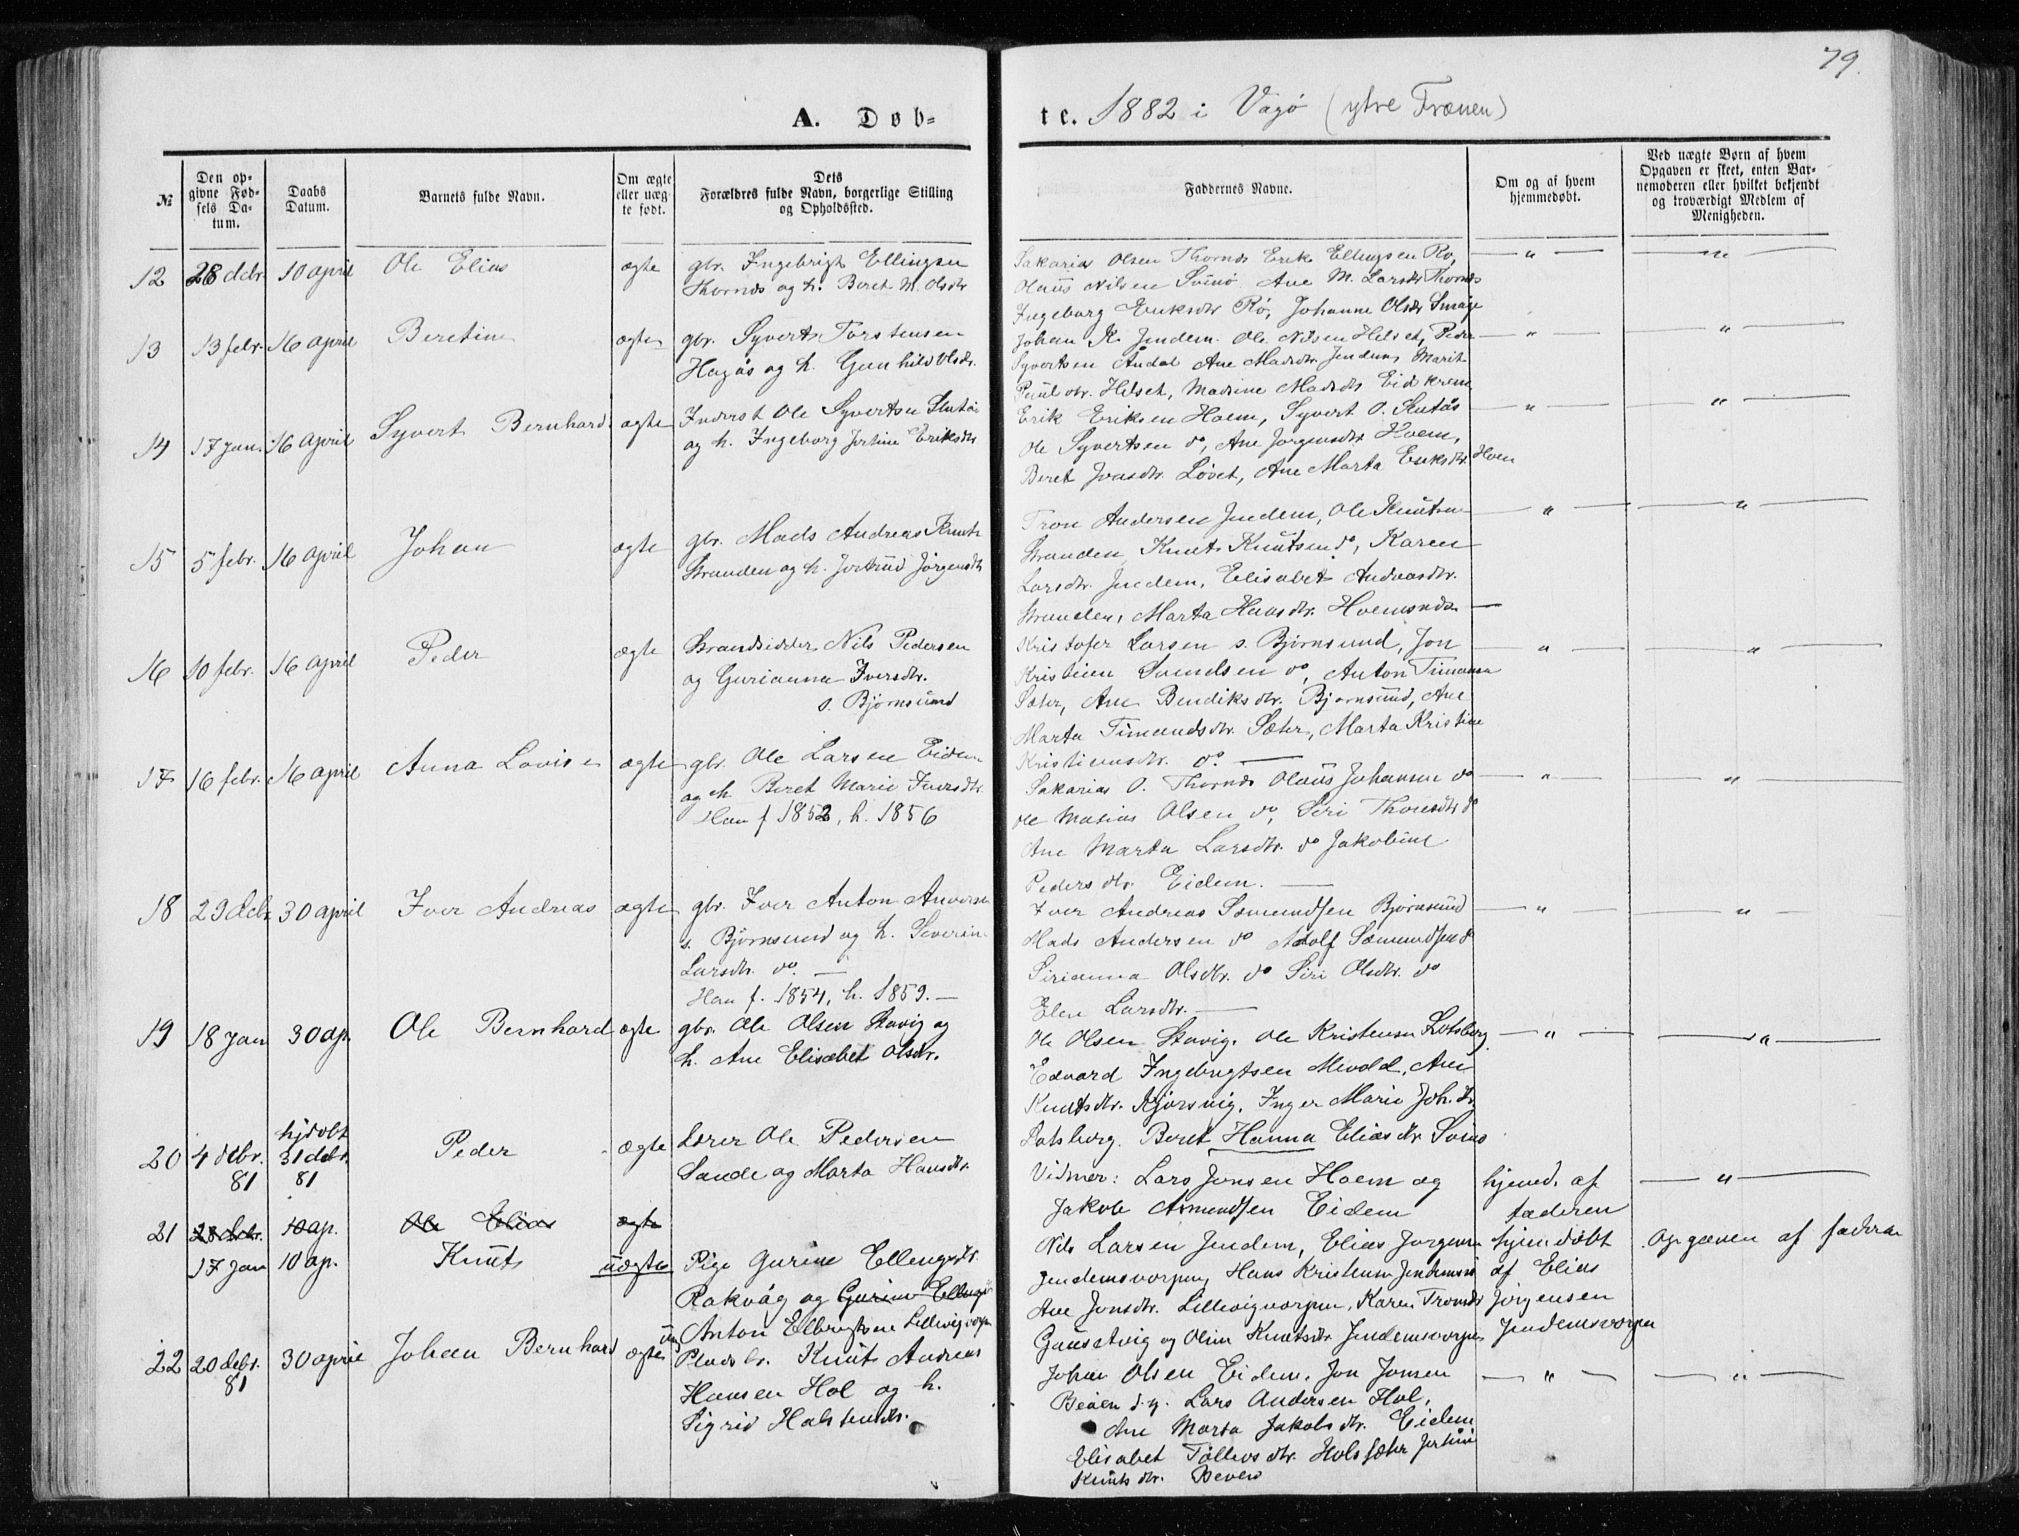 79.
A. Døb-
te. 1882 i Vagø (ytre Frænen)
№
Den op-
givne Fød-
sels Da-
tum.
Daabs
Datum.
Barnets fulde Navn.
Om ægte
eller uæg-
te født.
Dets
Forældres fulde Navn, borgerlige Stilling
og Opholdssted.
Faddernes Navne.
Om og af hvem
hjemmedøbt.
Ved uægte Børn af hvem
Opgaven er skeet, enten Bar-
nemoderen eller hvilket bekjendt
og troværdigt Medlem af
Menigheden.
12 28 debr. 10 april Ole Elias ægte
gbr. Ingebrigt Ellingsen
Thornæs og h. Beret M. Olsdtr
Sakarias Olsen Thornæs Erik Ellingsen Rø,
Olaus Nilsen Svinø, Ane M. Larsdtr Thornæs
Ingeborg Eriksdtr Rø, Johanne Olsdtr Smage
13 13 febr. 16 april Beretine ægte
gbr. Syvert Torstensen
Hagås og h. Gunhild Olsdr.
Johan K. Jendem. Ole Nilsen Helset, Peder
Syvertsen Åndal Ane Madsdtr. Jendem, Marit
Paulsdtr. Helset, Madsine Madsdtr Eidkrem
14 17 jan. 16 april Syvert Bernhard ægte
Inderst Ole Syvertsen Slutås
og h. Ingeborg Jertine Eriksdtr
Erik Eriksen Hoem, Syvert O. Slutås
Ole Syvertsen do, Ane Jørgensdtr Hoem,
Beret Jonsdtr. Løvet, Ane Marta Eriksdtr. Hoem
15 5 febr. 16 april Johan ægte
gbr. Mads Andreas Knuts
Stranden og h. Jertrud Jørgensdtr
Tron Andersen Jendem, Ole Knutsen
Stranden, Knut Knutsen do, Karen
Larsdtr. Jendem, Elisabet Andreasdtr.
Stranden, Marta Hansdtr. Hoemsnæs
16 10 febr. 16 april Peder ægte
Strandsidder Nils Pedersen
og Gurianna Iversdtr.
s. Bjørnsund
Kristofer Larsen s. Bjørnsund, Jon
Kristian Svendsen do, Anton Timansen
Sæter, Ane Bendiksdtr. Bjørnsund, Ane
Marta Timandsdtr. Sæter, Marta Kristine
Kristiansdtr. do.
17 16 febr. 16 april Anna Lovise ægte
gbr. Ole Larsen Eidem
og h. Beret Marie Iversdtr.
Han f 1852, h. 1856
Sakarias O. Thornæs Olaus Johansen do
Ole Matias Olsen do, Siri Thoresdtr do
Ane Marta Larsdtr. do Jakobine
Pedersdtr. Eidem.
18 29 debr. 30 april Iver Andreas ægte
gbr. Iver Anton
s. Bjørnsund og h. Severin
Larsdtr. do.
Han f. 1854, h. 1859.
Iver Andreas Sæmundsen Bjørnsund
Mads Andersen do Adolf Sæmundsen do
Sirianna Olsdtr. do Siri Olsdtr. do
Elen Larsdtr.
19 18 jan 30 ap. Ole Bernhard ægte
gbr. Ole Olsen Stavig og
h. Ane Elisabet Olsdtr.
Ole Olsen Stavig. Ole Kristensen Lotsberg
Edvard Ingebrigtsen Mevold, Ane
Knutsdtr. Kjørsvig, Inger Marie Joh.dtr
Lotsberg. Beret Hanna Eliasdtr Svinø
20 4 debr. 81 hjdøbt 31 debr. 81 Peder ægte
Lærer Ole Pedersen
Sande og Marta Hansdtr.
Vidner: Lars Jonsen Hoem og
Jakob Amundsen Eidem
hjemd. af
faderen
21 28 debr. 10 ap. Ole Elias ægte
17 jan 10 ap. Knut uægte
Pige Gurine Ellingsdtr.
Rakvåg og Gurine Ellings
Anton Elbrigtsen Lillevigvorpen
Nils Larsen Jendem, Elias Jørgensen
Jendemsvorpen, Hans Kristensen Jendemsvo
Ane Jonsdtr. Lillevigvorpen, Karen Tronsdtr
Gausetvig og Oline Knutsdtr Jendemsvorpen
hjemdøbt
af Elias
Jørgensen
Jendemsvorpen
Opgaven af faderen
22 20 debr. 81 30 april Johan Bernhard ægte
Pladsbr. Knut Andreas
Hansen Hol og h.
Sigrid Halstensdtr.
Johan Olsen Eidem. Jon Jonsen
Beåen d.y. Lars Andersen Hol,
Ane Marta Jakobsdtr. Eidem
Elisabet Tollevsdtr. Holssæter Jertine
Knutsdtr.